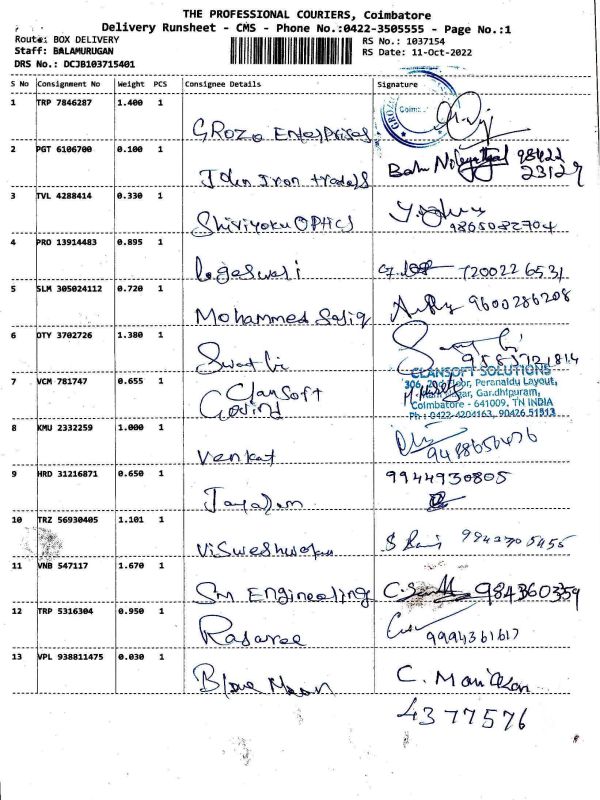 THE PROFESSIONAL COURIERS, Coimbatore
Delivery Runsheet - CMS - Phone No.:0422-3505555 - Page No.:1
Route: BOX DELIVERY
RS No.: 1037154
Staff: BALAMURUGAN
RS Date: 11-Oct-2022
DRS No.: DCJB103715401
S No Consignment No Weight PCS Consignee Details Signature
1 TRP 7846287 1.400 1
GROZO Enterprises
2 PGT 6106700 0.100 1
Iron traders
98422
23129
3 TVL 4288414 0.330 1
Shiviyoku OPTICS
9865082704
4 PRO 13914483 0.895 1
Logeswari 7200226531
5 SLM 305024112 0.720 1
Mohammed Sadiq 9600286208
6 OTY 3702726 1.380 1
Swathi
7 VCM 781747 0.655 1
Clansoft
Govind
CLANSOFT SOLUTIONS
306, 2nd Floor, Peranaidu Layout,
Nagar, Gandhipuram,
Coimbatore - 641009. TN INDIA
Ph : 0422-4204163, 90426 51513
8 KMU 2332259 1.000 1
Venkat
9 HRD 31216871 0.650 1
9944930805
Jayaram
10 TRZ 56930405 1.101 1
Visweshwaran
11 VNB 547117 1.670 1
Sm Engineering
12 TRP 5316304 0.950 1
9994361617
13 VPL 938811475 0.030 1
Blue Moon C. Manickam
4377576